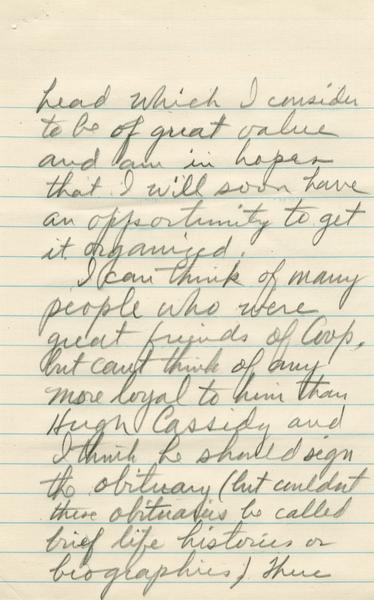 head which I consider
to be of great value
and am in hopes
that I will soon have
an opportunity to get
it organized.
I can think of many
people who were
great friends of Coop,
but can't think of any
more loyal to him than
Hugh Cassidy and
I think he should sign
the obituary (but couldn't
these obituaries be called
brief life histories or
biographies) There